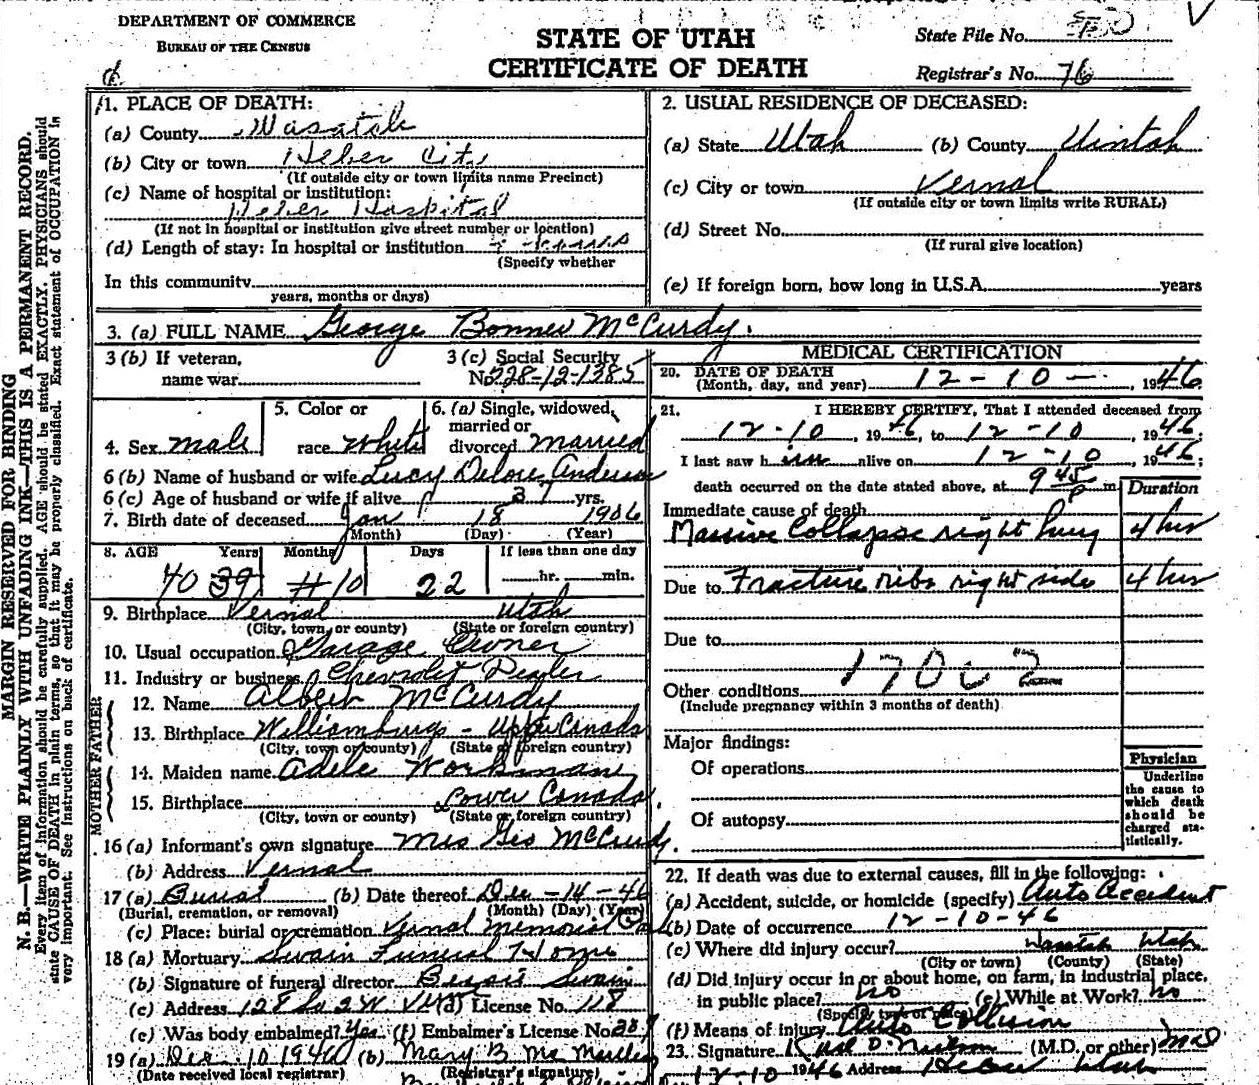 DEPARTMENT OF COMMERCE
BUREAU OF THE CENSUS
STATE OF UTAH
CERTIFICATE OF DEATH
State File No.
Registrar's No. 76
MARGIN RESERVED FOR BINDING
N. B.—WRITE PLAINLY WITH UNFADING INK—THIS IS A PERMANENT RECORD.
Every item of information should be carefully supplied. AGE should be stated EXACTLY. PHYSICIANS should
state CAUSE OF DEATH in plain terms, so that it may be properly classified. Exact statement of OCCUPATION is
very important. See instructions on back of certificate.
1. PLACE OF DEATH:
(a) County Wasatch
(b) City or town Heber City
(If outside city or town limits name Precinct)
(c) Name of hospital or institution:
Heber Hospital
(If not in hospital or institution give street number or location)
(d) Length of stay: In hospital or institution
(Specify whether
In this community
years, months or days)
2. USUAL RESIDENCE OF DECEASED:
(a) State Utah (b) County Uintah
(c) City or town Vernal
(If outside city or town limits write RURAL)
(d) Street No.
(If rural give location)
(e) If foreign born, how long in U.S.A. years
3. (a) FULL NAME George Bonner McCurdy.
3 (b) If veteran,
name war
3 (c) Social Security
No. 528-12-1385
4. Sex male
5. Color or
race White
6. (a) Single, widowed,
married or
divorced married
6 (b) Name of husband or wife Lucy Delore Anderson
6 (c) Age of husband or wife if alive 37 yrs.
7. Birth date of deceased Jan 18 1906
(Month) (Day) (Year)
8. AGE Years Months Days If less than one day
40 39 10 22 hr. min.
9. Birthplace Vernal Utah
(City, town, or county) (State or foreign country)
10. Usual occupation Garage Owner
11. Industry or business Chevrolet Dealer
FATHER
12. Name Albert McCurdy
13. Birthplace Williamsburg - Upper Canada
(City, town or county) (State or foreign country)
MOTHER
14. Maiden name Adele Workman
15. Birthplace Lower Canada
(City, town or county) (State or foreign country)
16 (a) Informant's own signature Mrs Geo McCurdy.
(b) Address Vernal
17 (a) Burial (b) Date thereof Dec - 14 - 46
(Burial, cremation, or removal) (Month) (Day) (Year)
(c) Place: burial or cremation Vernal Memorial
18 (a) Mortuary Swain Funeral Home
(b) Signature of funeral director Swain
(c) Address 128 So 2 W. (d) License No. 118
(e) Was body embalmed? Yes (f) Embalmer's License No.
19 (a) Dec. 10 1946 (b) Mary B. Mc
(Date received local registrar) (Registrar's signature)
MEDICAL CERTIFICATION
20. DATE OF DEATH
(Month, day, and year) 12 - 10 - , 1946
21. I HEREBY CERTIFY, That I attended deceased from
12-10, 1946, to 12-10, 1946.
I last saw him alive on 12-10, 1946;
death occurred on the date stated above, at 9 45 P m.
Duration
Immediate cause of death
Massive Collapse right lung 4 hrs
Due to Fracture ribs right side 4 hrs
Due to
Other conditions
(Include pregnancy within 3 months of death)
Major findings:
Of operations
Of autopsy
Physician
Underline
the cause to
which death
should be
charged sta-
tistically.
22. If death was due to external causes, fill in the following:
(a) Accident, suicide, or homicide (specify) Auto Accident
(b) Date of occurrence 12-10-46
(c) Where did injury occur? Wasatch Utah
(City or town) (County) (State)
(d) Did injury occur in or about home, on farm, in industrial place,
in public place? no (e) While at Work? no
(Specify type of place)
(f) Means of injury Auto Collision
23. Signature (M.D. or other) MD
12-10 1946 Address Heber Utah